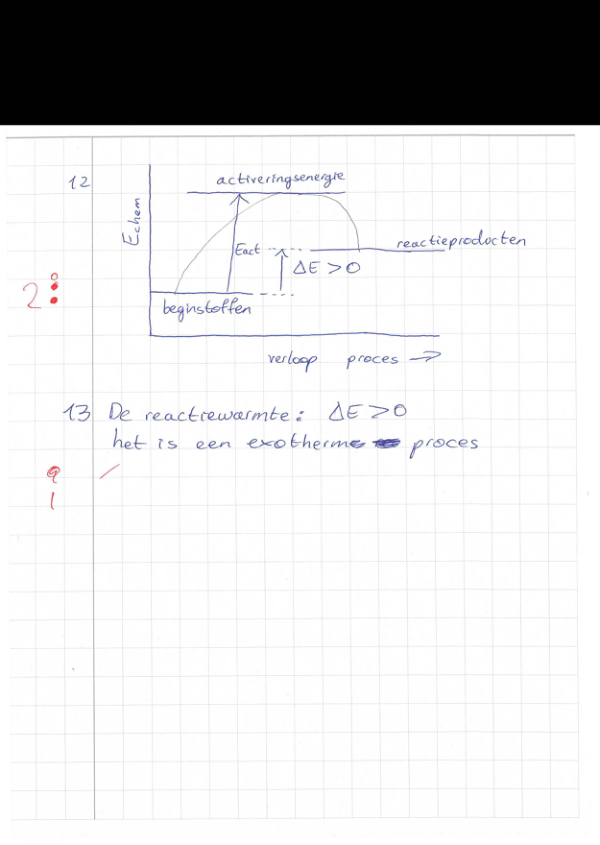 12
activeringsenergie
Echem
Eact
reactieproducten
ΔE > 0
2
beginstoffen
verloop proces →
13 De reactiewarmte: ΔE > 0
het is een exotherme proces
1